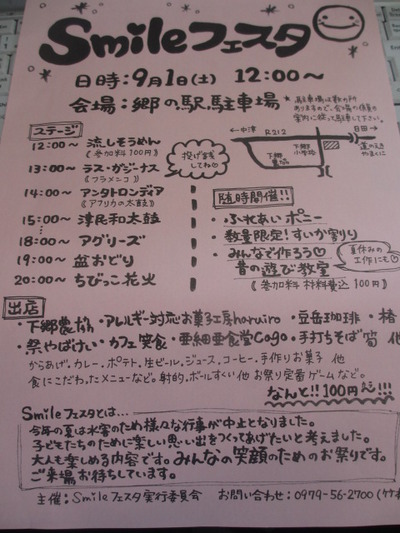 Smileフェスタ
日時:9月1日(土) 12:00〜
会場:郷の駅駐車場
ステージ
12:00〜 流しそうめん
(参加料100円)
13:00〜 ラス・ガジーナス
《フラメンコ》
14:00〜 アンタトロンディア
《アフリカの太鼓》
15:00〜 津民和太鼓
18:00〜 アグリーズ
19:00〜 盆おどり
20:00〜 ちびっこ花火
投げ銭してね♡
*駐車場は数か所
ありますので、会場の係員の
案内に従って駐車して下さい。
←中津 R212 日田→
下郷農協
下郷小学校
道の駅やまくに
随時開催!!
・ふれあいポニー
・数量限定!すいか割り
・みんなで作ろう♡
昔の遊び教室
(参加料 材料費込100円)
夏休みの工作にも♡
出店
・下郷農協 ・アレルギー対応お菓子工房haruiro ・豆岳珈琲 ・椿
・祭やばけい ・カフェ実食 ・亜細亜食堂Cago ・手打ちそば筍 他
からあげ、カレー、ポテト、生ビール、ジュース、コーヒー、手作りお菓子 他
食にこだわったメニューなど。射的、ボールすくい他 お祭り定番ゲームなど。
なんと!!100円〜!!!
Smileフェスタとは…
今年の夏は水害のため様々な行事が中止となりました。
子どもたちのために楽しい思い出をつくってあげたいと考えました。
大人も楽しめる内容です。みんなの笑顔のためのお祭りです。
ご来場お待ちしています。
主催:Smileフェスタ実行委員会 お問い合わせ:0979-56-2700